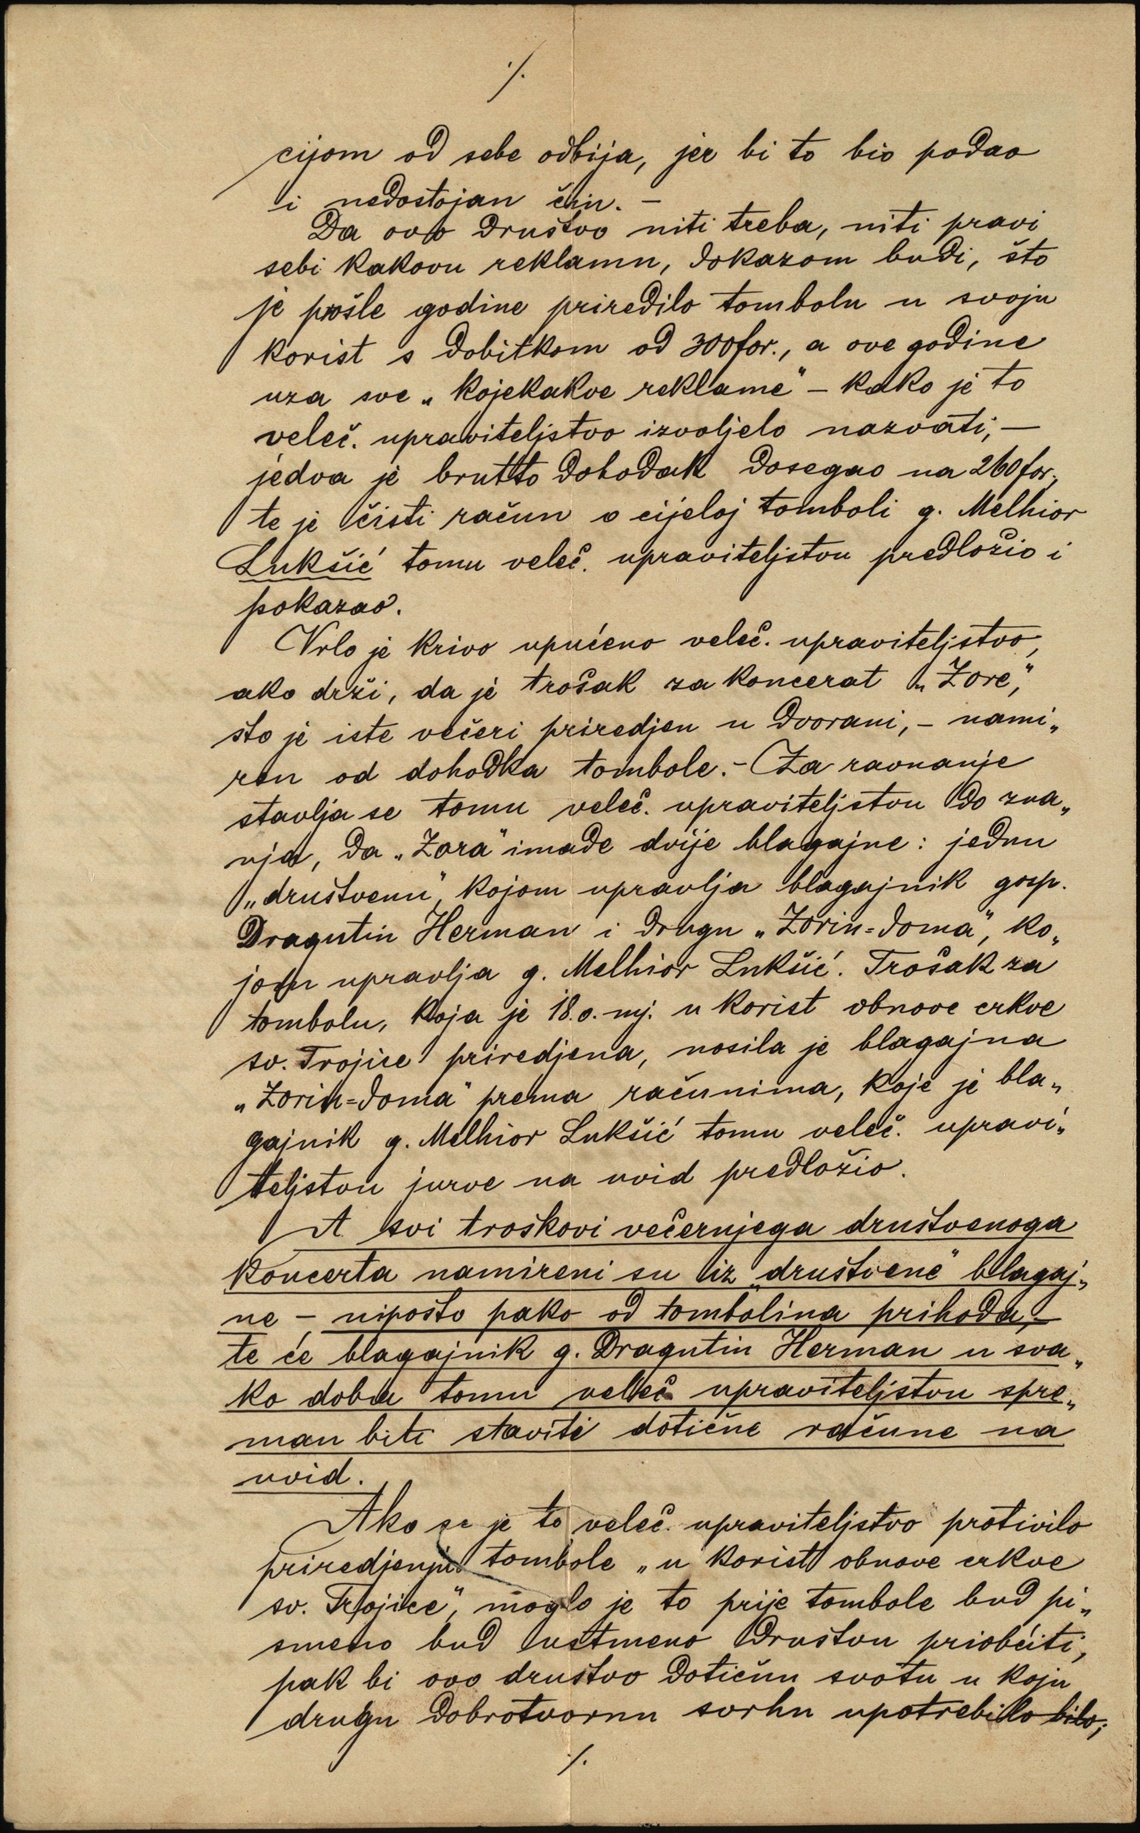 ./.
cijom od sebe odbija, jer bi to bio podao
i nedostojan čin. –
Da ovo društvo niti treba, niti pravi
sebi kakovu reklamu, dokazom budi, što
je prošle godine priredilo tombolu u svoju
korist s dobitkom od 300 for., a ove godine
uza sve „kojekakve reklame" – kako je to
veleč. upraviteljstvo izvoljelo nazvati, –
jedva je brutto dohodak dosegao na 260 for.,
te je čisti račun o cijeloj tomboli g. Melhior
Lukšić tomu veleč. upraviteljstvu predložio i
pokazao.
Vrlo je krivo upućeno veleč. upraviteljstvo,
ako drži, da je trošak za koncerat „Zore",
što je iste večeri priredjen u dvorani, – nami„
ren od dohodka tombole. – Za ravnanje
stavlja se tomu veleč. upraviteljstvu do zna„
nja, da „Zora" imade dvije blagajne: jednu
„društvenu", kojom upravlja blagajnik gosp.
Dragutin Herman i drugu „Zorin=doma", ko„
jom upravlja g. Melhior Lukšić. Trošak za
tombolu, koja je 18. o. mj. u korist obnove crkve
sv. Trojice priredjena, nosila je blagajna
„Zorin=doma" prema računima, koje je bla„
gajnik g. Melhior Lukšić tomu veleč. upravi„
teljstvu jurve na uvid predložio.
A svi troškovi večernjega društvenoga
koncerta namireni su iz „društvene" blagaj„
ne – nipošto pako od tombolina prihoda, –
te će blagajnik g. Dragutin Herman u sva„
ko doba tomu veleč. upraviteljstvu spre„
man biti staviti dotične račune na
uvid.
Ako se je to veleč. upraviteljstvo protivilo
priredjenju tombole „u korist obnove crkve
sv. Trojice", moglo je to prije tombole bud pi„
smeno bud ustmeno društvu priobćiti,
pak bi ovo društvo dotičnu svotu u koju
drugu dobrotvornu svrhu upotrebilo bilo;
./.